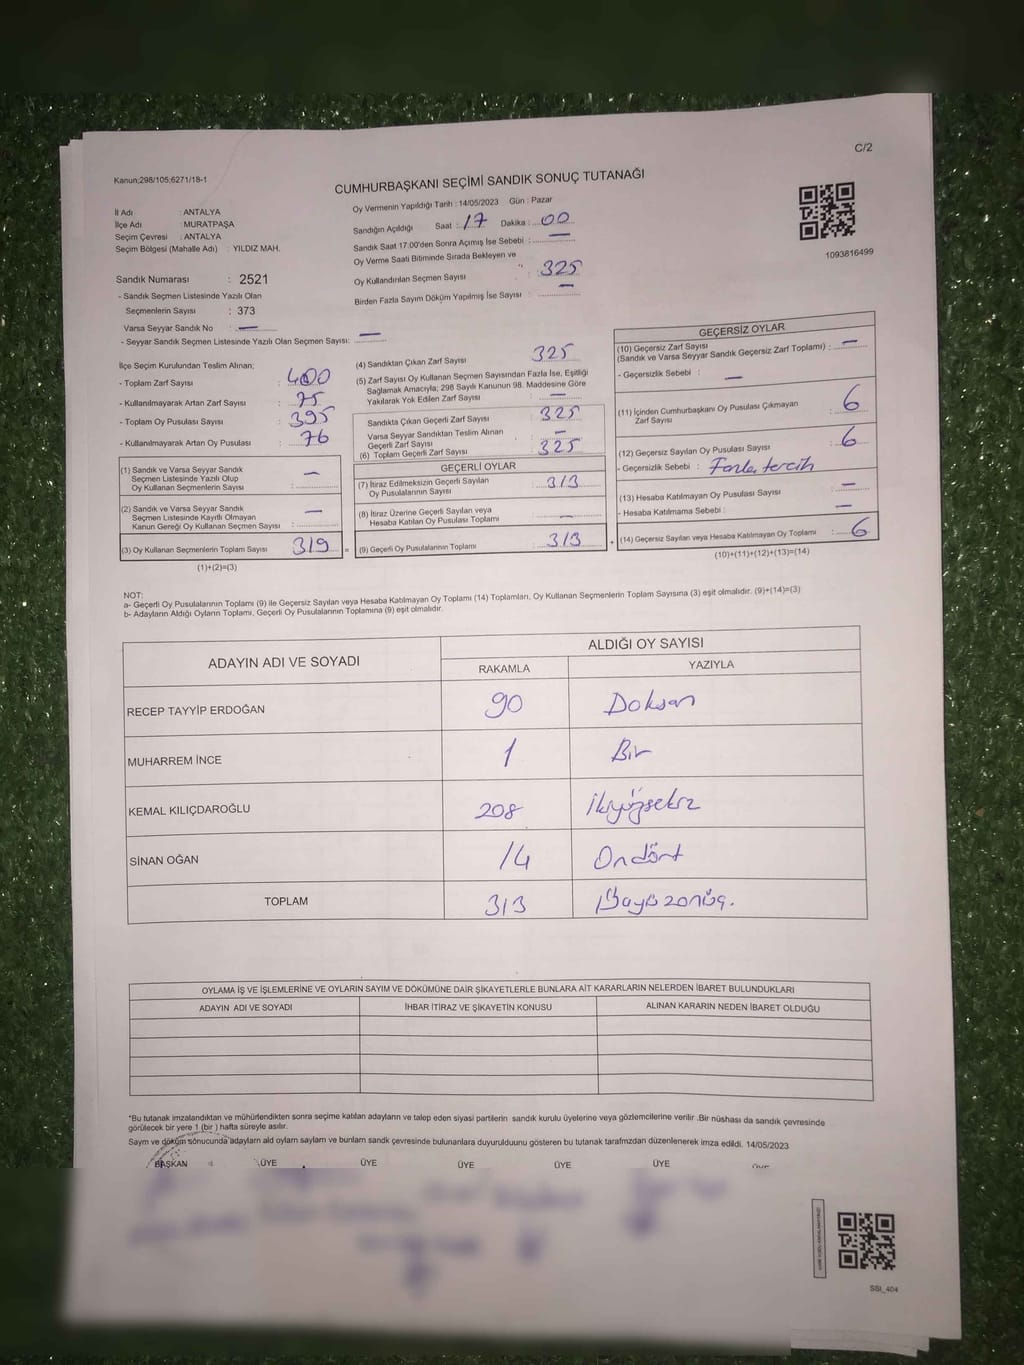 C/2
Kanun;298/105;6271/18-1
CUMHURBAŞKANI SEÇİMİ SANDIK SONUÇ TUTANAĞI
İl Adı : ANTALYA
İlçe Adı : MURATPAŞA
Seçim Çevresi : ANTALYA
Seçim Bölgesi (Mahalle Adı) : YILDIZ MAH.
Oy Vermenin Yapıldığı Tarih : 14/05/2023 Gün : Pazar
Sandığın Açıldığı Saat : 17 Dakika : 00
Sandık Saat 17.00'den Sonra Açımış İse Sebebi : —
Oy Verme Saati Bitiminde Sırada Bekleyen ve
Oy Kullandırılan Seçmen Sayısı : 325
Birden Fazla Sayım Döküm Yapılmış İse Sayısı : —
1093816499
Sandık Numarası : 2521
- Sandık Seçmen Listesinde Yazılı Olan
Seçmenlerin Sayısı : 373
Varsa Seyyar Sandık No : —
- Seyyar Sandık Seçmen Listesinde Yazılı Olan Seçmen Sayısı: —
İlçe Seçim Kurulundan Teslim Alınan;
- Toplam Zarf Sayısı : 400
- Kullanılmayarak Artan Zarf Sayısı : 75
- Toplam Oy Pusulası Sayısı : 395
- Kullanılmayarak Artan Oy Pusulası : 76
(1) Sandık ve Varsa Seyyar Sandık
Seçmen Listesinde Yazılı Olup
Oy Kullanan Seçmenlerin Sayısı : —
(2) Sandık ve Varsa Seyyar Sandık
Seçmen Listesinde Kayıtlı Olmayan
Kanun Gereği Oy Kullanan Seçmen Sayısı : —
(3) Oy Kullanan Seçmenlerin Toplam Sayısı 319 =
(1)+(2)=(3)
(4) Sandıktan Çıkan Zarf Sayısı : 325
(5) Zarf Sayısı Oy Kullanan Seçmen Sayısından Fazla İse, Eşitliği
Sağlamak Amacıyla; 298 Sayılı Kanunun 98. Maddesine Göre
Yakılarak Yok Edilen Zarf Sayısı : —
Sandıkta Çıkan Geçerli Zarf Sayısı : 325
Varsa Seyyar Sandıktan Teslim Alınan
Geçerli Zarf Sayısı : —
(6) Toplam Geçerli Zarf Sayısı : 325
GEÇERLİ OYLAR
(7) İtiraz Edilmeksizin Geçerli Sayılan
Oy Pusulalarının Sayısı : 313
(8) İtiraz Üzerine Geçerli Sayılan veya
Hesaba Katılan Oy Pusulası Toplamı : —
(9) Geçerli Oy Pusulalarının Toplamı : 313 +
GEÇERSİZ OYLAR
(10) Geçersiz Zarf Sayısı
(Sandık ve Varsa Seyyar Sandık Geçersiz Zarf Toplamı) : —
- Geçersizlik Sebebi : —
(11) İçinden Cumhurbaşkanı Oy Pusulası Çıkmayan
Zarf Sayısı : 6
(12) Geçersiz Sayılan Oy Pusulası Sayısı : 6
- Geçersizlik Sebebi : Fazla tercih
(13) Hesaba Katılmayan Oy Pusulası Sayısı : —
- Hesaba Katılmama Sebebi : —
(14) Geçersiz Sayılan veya Hesaba Katılmayan Oy Toplamı : 6
(10)+(11)+(12)+(13)=(14)
NOT:
a- Geçerli Oy Pusulalarının Toplamı (9) ile Geçersiz Sayılan veya Hesaba Katılmayan Oy Toplamı (14) Toplamları, Oy Kullanan Seçmenlerin Toplam Sayısına (3) eşit olmalıdır. (9)+(14)=(3)
b- Adayların Aldığı Oyların Toplamı, Geçerli Oy Pusulalarının Toplamına (9) eşit olmalıdır.
ADAYIN ADI VE SOYADI
ALDIĞI OY SAYISI
RAKAMLA YAZIYLA
RECEP TAYYİP ERDOĞAN 90 Doksan
MUHARREM İNCE 1 Bir
KEMAL KILIÇDAROĞLU 208 İkiyüzsekiz
SİNAN OĞAN 14 Ondört
TOPLAM 313
OYLAMA İŞ VE İŞLEMLERİNE VE OYLARIN SAYIM VE DÖKÜMÜNE DAİR ŞİKAYETLERLE BUNLARA AİT KARARLARIN NELERDEN İBARET BULUNDUKLARI
ADAYIN ADI VE SOYADI İHBAR İTİRAZ VE ŞİKAYETİN KONUSU ALINAN KARARIN NEDEN İBARET OLDUĞU
*Bu tutanak imzalandıktan ve mühürlendikten sonra seçime katılan adayların ve talep eden siyasi partilerin sandık kurulu üyelerine veya gözlemcilerine verilir .Bir nüshası da sandık çevresinde
görülecek bir yere 1 (bir ) hafta süreyle asılır.
Sayım ve döküm sonucunda adayların ald oyların sayların ve bunların sandk çevresinde bulunanlara duyurulduunu gösteren bu tutanak tarafmzdan düzenlenerek imza edildi. 14/05/2023
BAŞKAN ÜYE ÜYE ÜYE ÜYE ÜYE
SSI_404